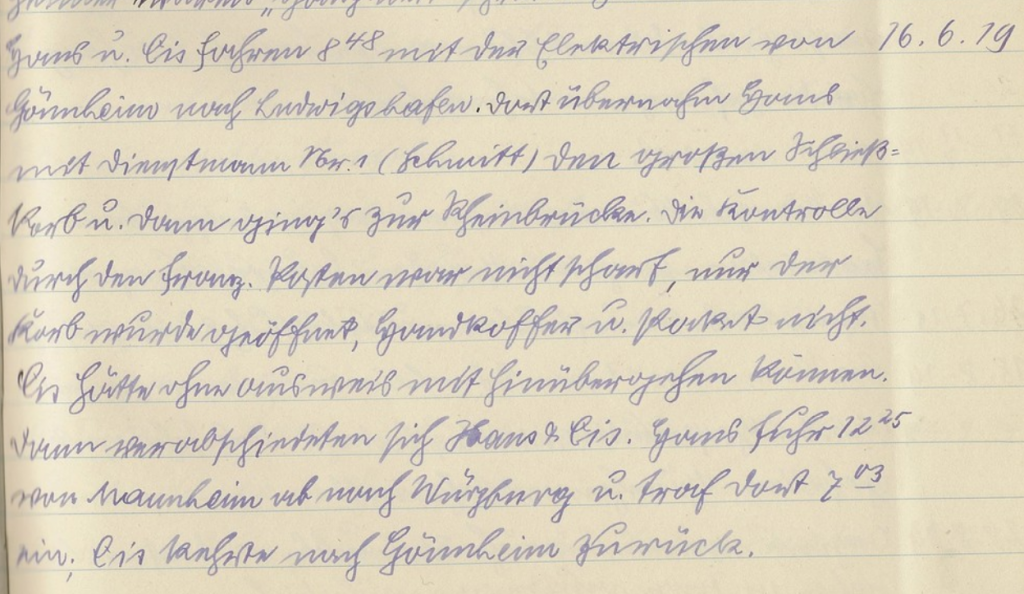 Hans u. Cis fahren 8⁴⁸ mit der Elektrischen von 16. 6. 19
Gönnheim nach Ludwigshafen. Dort übernahm Hans
mit Dienstmann Nr. 1 (Schmitt) den großen Schließ=
korb u. dann ging's zur Rheinbrücke. Die Kontrolle
durch den franz. Posten war nicht scharf, nur der
Korb wurde geöffnet, Handkoffer u. Paket nicht.
Cis hätte ohne Ausweis mit hinübergehen können.
Dann verabschiedeten sich Hans & Cis. Hans fuhr 12²⁵
von Mannheim ab nach Würzburg u. traf dort 7⁰³
ein; Cis kehrte nach Gönnheim zurück.